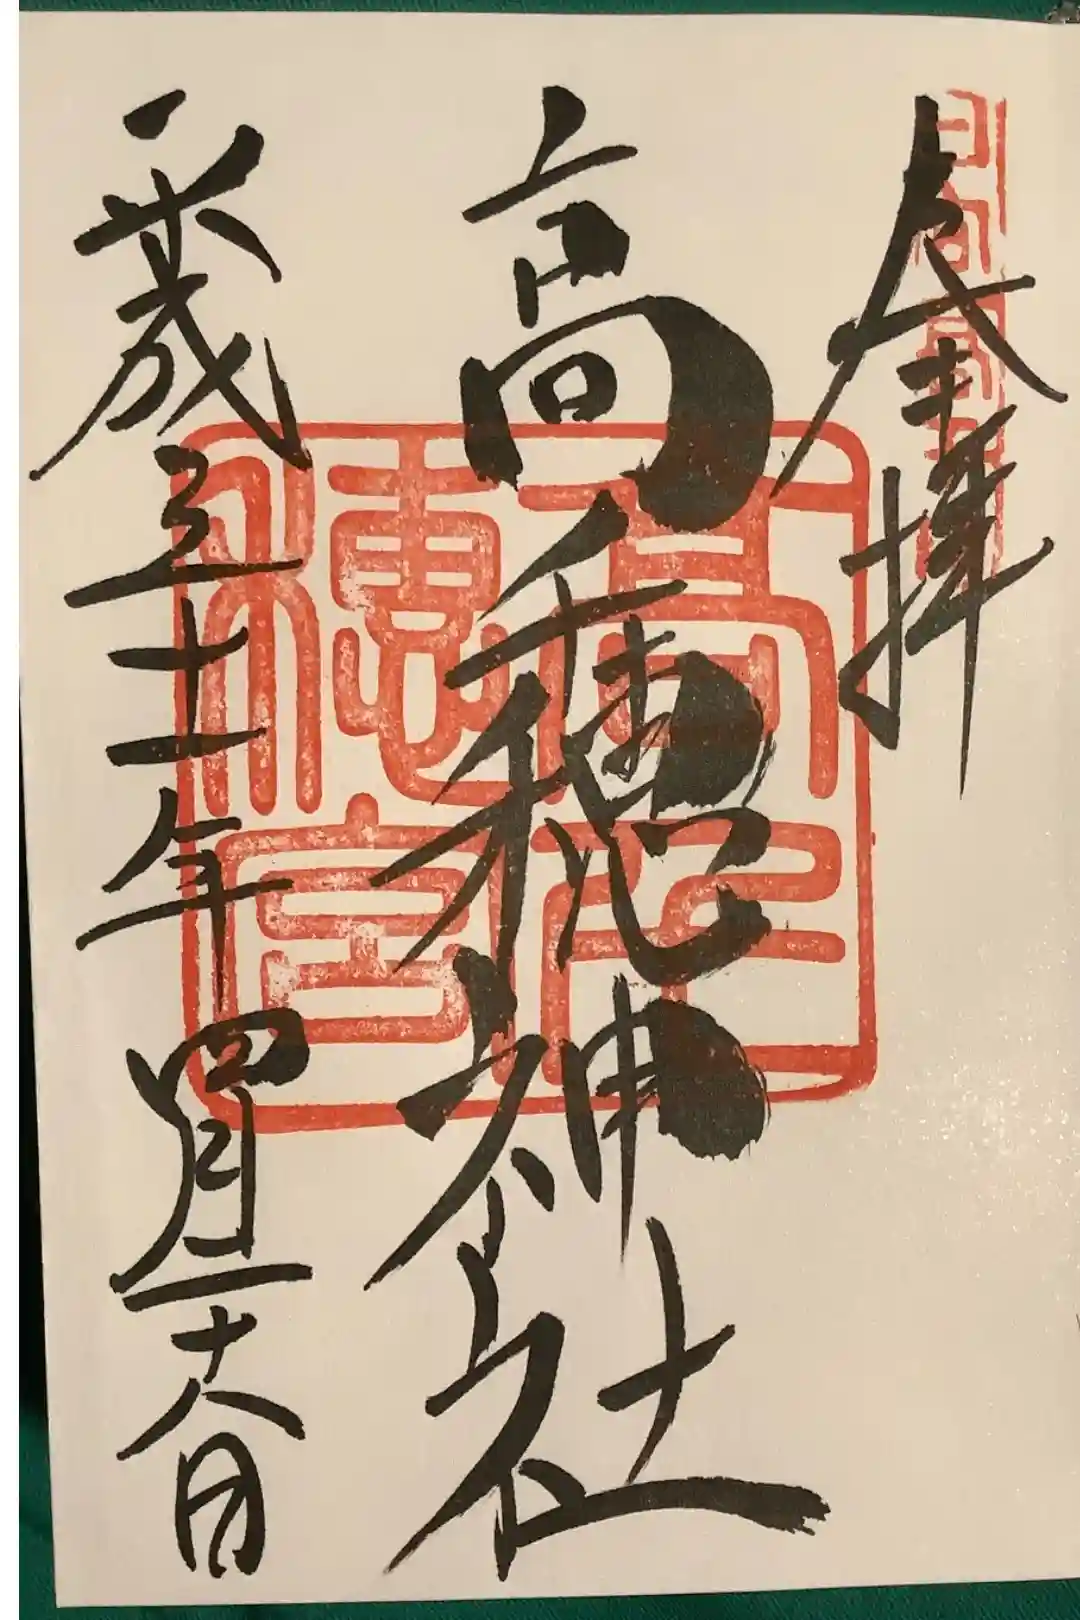 奉拝
高千穂神社
平成三十一年四月二十八日
高千穂宮